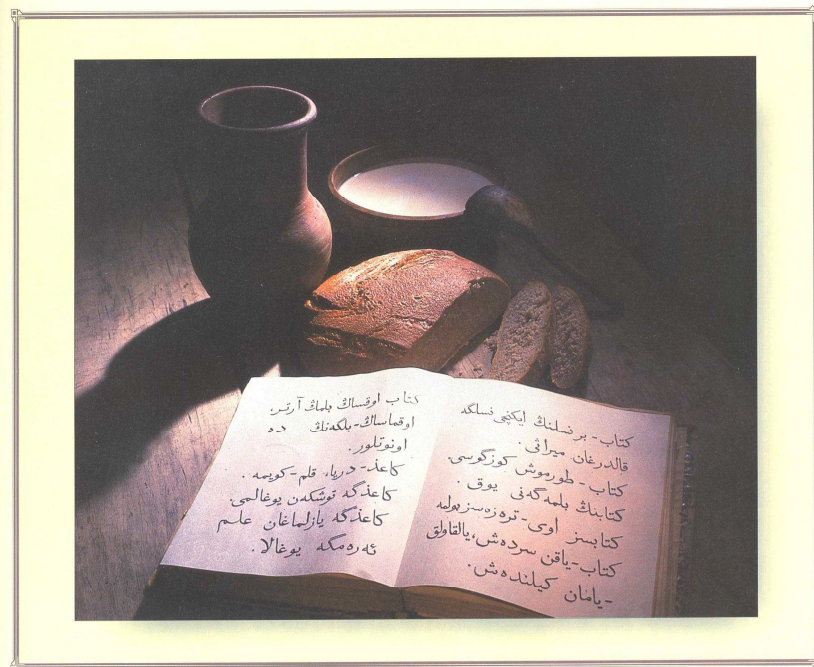 كتاب - برنسلنڭ ايكنچى نسلگه
قالدرغان ميراثى .
كتاب - طورموش كوزگوسى.
كتابنڭ بلمه‌گه‌نى يوق .
كتابسز اوى - تره‌زه‌سز بولمه
كتاب - ياقن سرده‌ش، يالقاولق
- يامان كيلنده‌ش.
كتاب اوقساڭ بلمڭ آرتر،
اوقماساڭ - بلگه‌نڭ ده
اونوتلور.
كاعذ - دريا، قلم - كويمه .
كاعذگه توشكه‌ن يوغالمى.
كاعذگه يازلماغان علم
ئه‌ره‌مگه يوغالا .